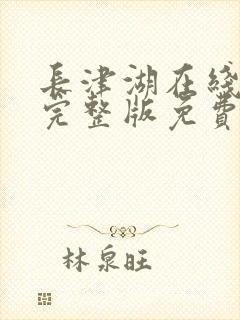 長津湖在綫
完整版免費
林泉旺